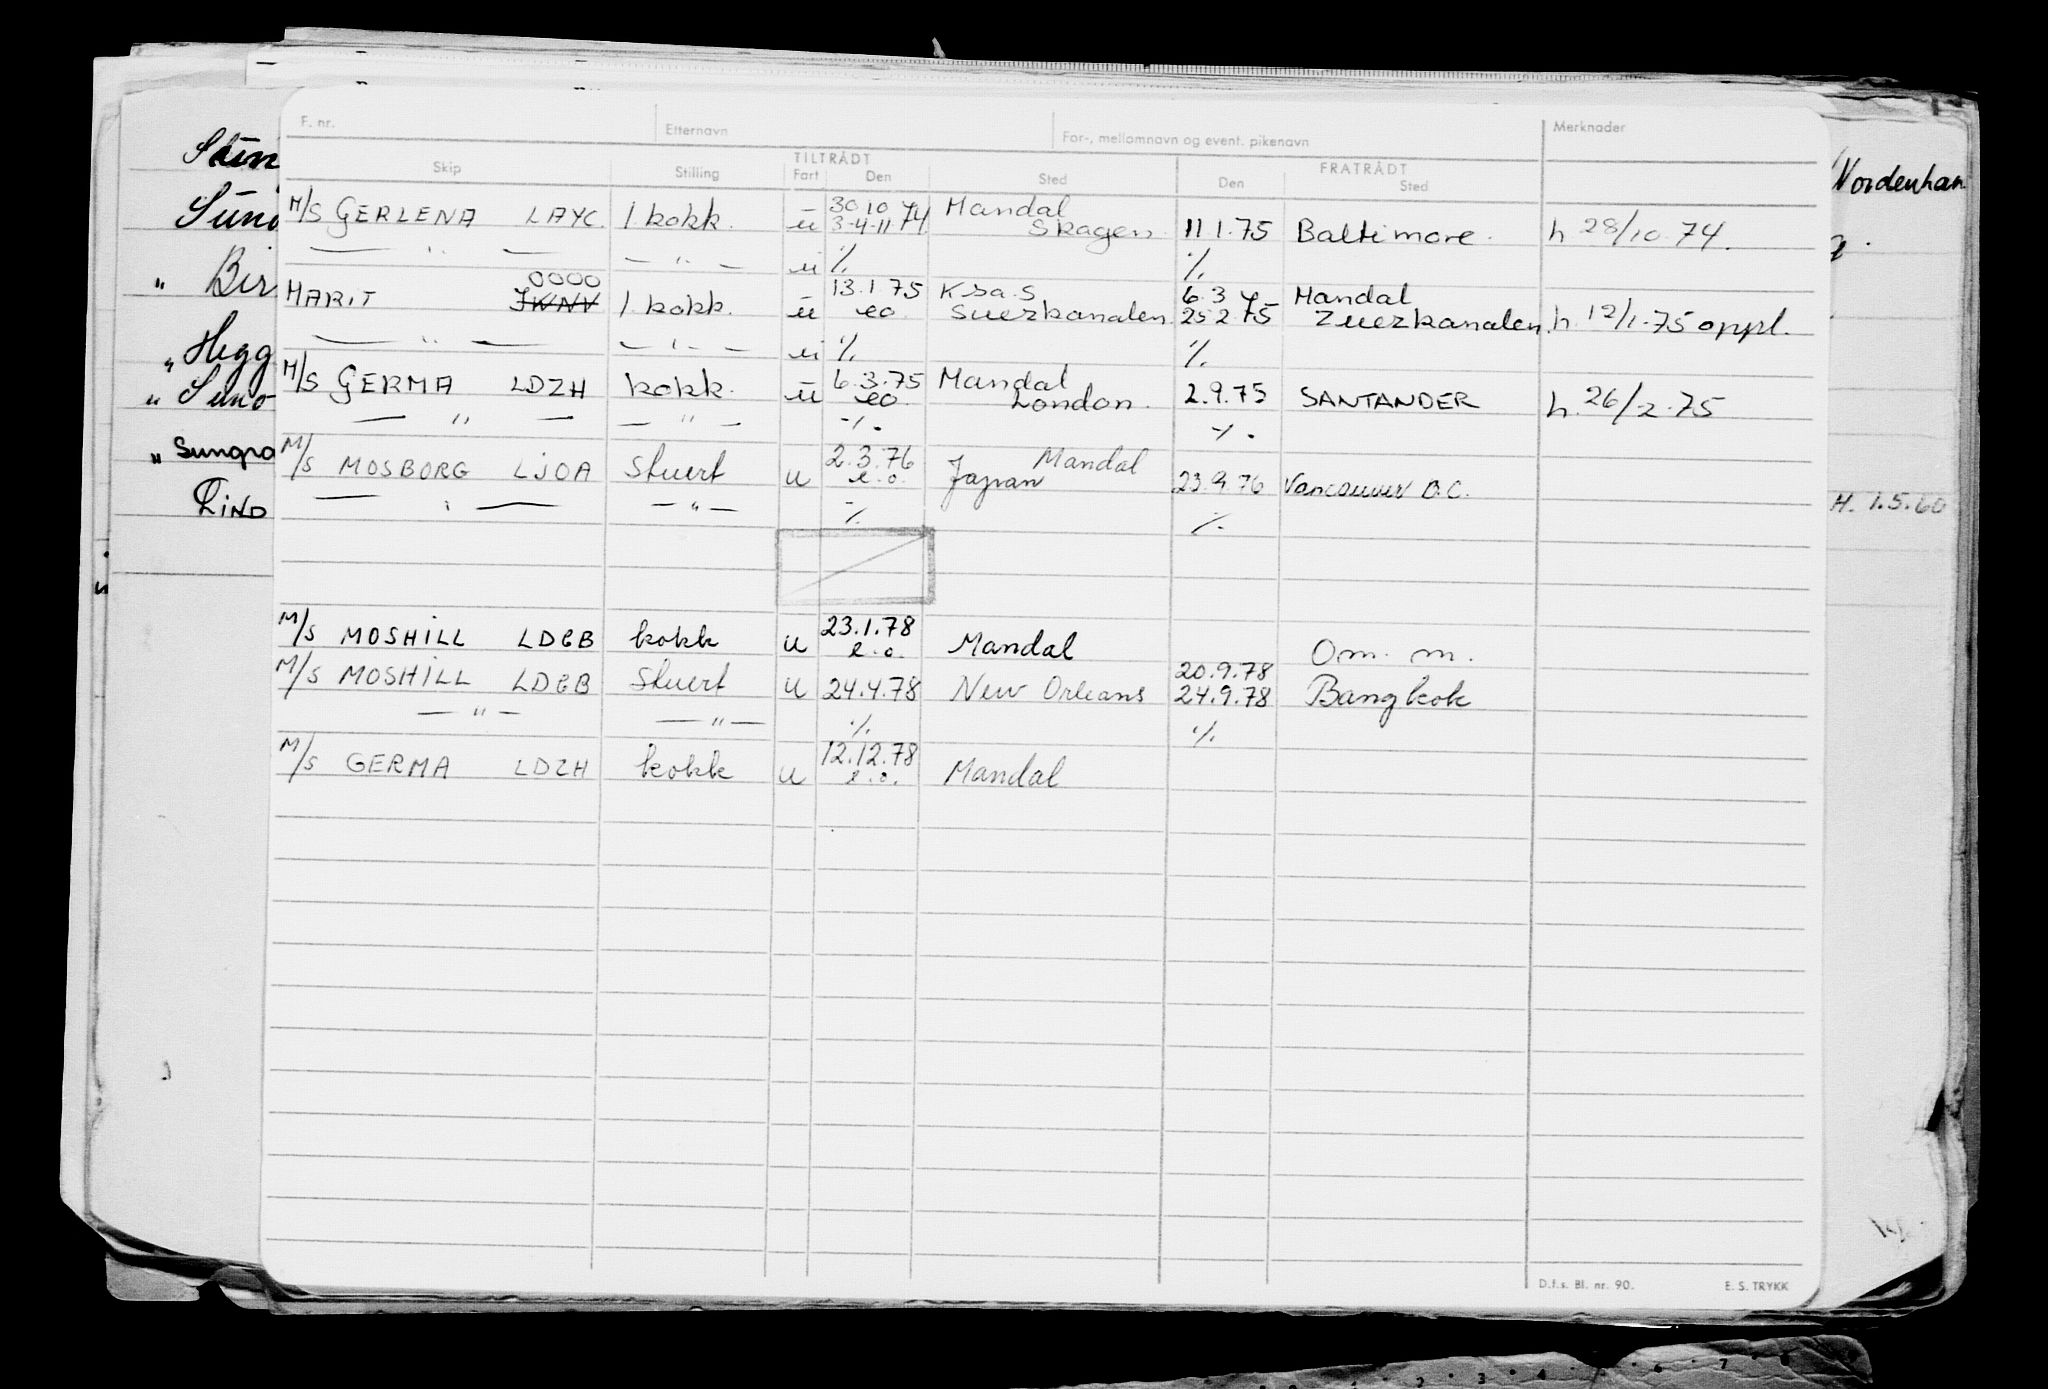 F. nr. Etternavn For-, mellomnavn og event. pikenavn Merknader
TILTRÅDT FRATRÅDT
Skip Stilling Fart Den Sted Den Sted
30 10 74 Mandal
M/S GERLENA LAYC. 1. kokk. u 3-4-11 74 Skagen. 11.1.75 Baltimore. h 28/10.74.
— " — — " — u ./. ./.
0000 13.1.75 6.3 Mandal
MARIT JWNV 1. kokk. u eo. Suezkanalen 25 2 75 Zuezkanalen. h. 12/1.75 oppl.
— " — — " — u ./. ./.
6.3.75 Mandal
M/S GERMA LDZH kokk. u eo. London. 2.9.75 SANTANDER h. 26/2.75
— " — — " — ./. ./.
2.3.76 Mandal
M/S MOSBORG LJOA Stuert u e.o. Japan 23.9.76 Vancouver B.C.
— " — — " — ./. ./.
23.1.78
M/S MOSHILL LDGB kokk u e.o. Mandal Om. m.
20.9.78
M/S MOSHILL LDGB Stuert u 24.4.78 New Orleans 24.9.78 Bangkok
— " — — " — ./. ./.
12.12.78
M/S GERMA LDZH kokk u e.o. Mandal
D.f.s. Bl. nr. 90. E. S. TRYKK
" Bir
" Hegg
" Suno
" Sungra
H. 1.5.60